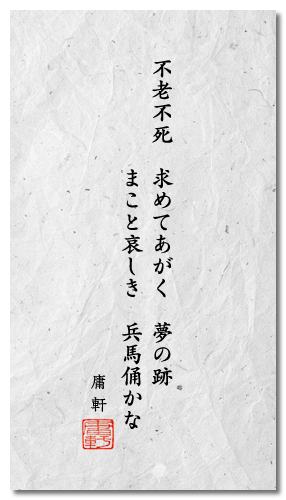 不老不死　求めてあがく　夢の跡
まこと哀しき　兵馬俑かな
庸軒